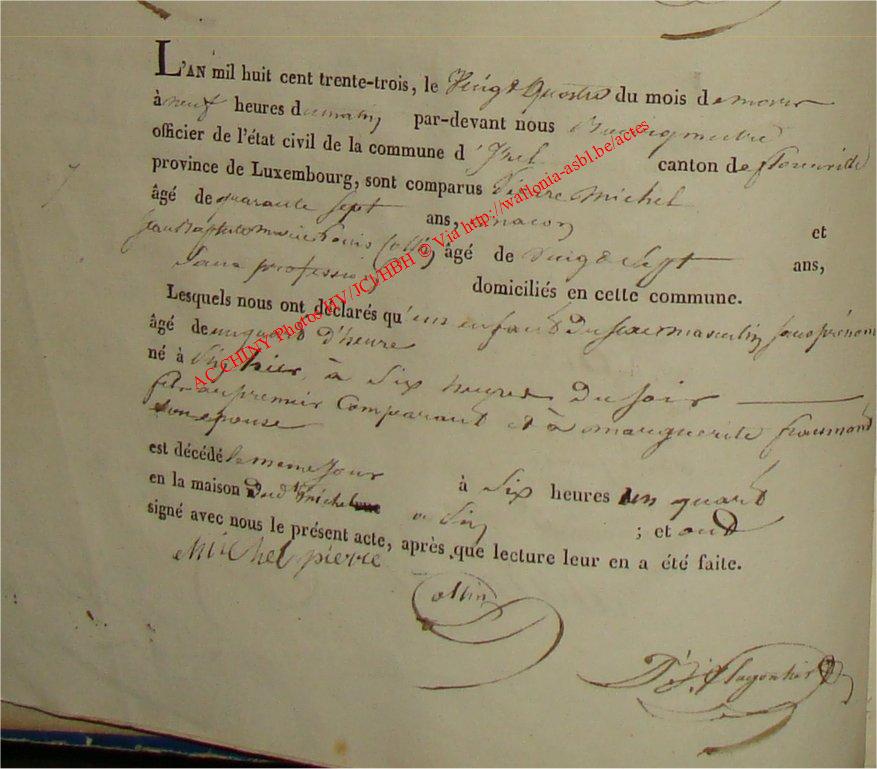 L'AN mil huit cent trente-trois, le Vingt Quatre du mois de mars
à neuf heures du matin par-devant nous Bourgmestre
officier de l'état civil de la commune d'Izel canton de florenville
province de Luxembourg, sont comparus Pierre Michel
âgé de quarante sept ans, maçon et
jean Baptiste Marie Louis Collin âgé de Vingt Sept ans,
Sans profession domiciliés en cette commune.
Lesquels nous ont déclarés qu'un enfant du sexe masculin sans prénom
âgé de un quart d'heure
né à hier, à Six heures du soir
fils au premier Comparant et à marguerite fraumont
son epouse
est décédé le meme jour à Six heures un quart
en la maison dud. michel ; et ont
signé avec nous le présent acte, après que lecture leur en a été faite.
Michel pierre
Collin
AC CHINY Photos HV/JCI/HBH © Via http://wallonia-asbl.be/actes